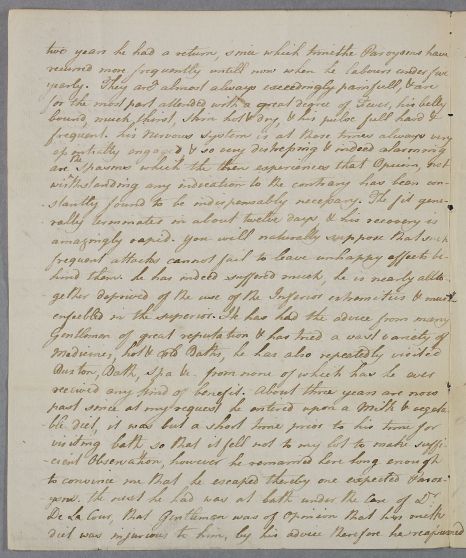 two years he had a return, since which time the Paroysms have
recurred more frequently untill now when he labours under five
yearly. They are almost always exceedingly painfull, & are
for the most part attended with a great degree of Fever, his belly
bound, much thirst, Skin hot & dry, & his pulse full hard &
frequent. his Nervous System is at those times always very
essentially engaged, & so very distressing & indeed alarming
are the Spasms which he then experiences that Opium, not
withstanding any indication to the contrary has been con-
stantly found to be indispensably necessary. The fit gene-
rally terminates in about twelve days & his recovery is
amazingly rapid. you will naturally suppose that such
frequent attacks cannot fail to leave unhappy effects be-
hind them. he has indeed suffered much, he is nearly alto-
gether deprived of the use of the Inferior extremities & much
enfeebled in the superior. He has had the advice from many
Gentlemen of great reputation & has tried a vast variety of
Medicines, hot & Cold Baths, he has also repeatedly visited
Buxton, Bath, Spa &c. from none of which has he ever
received any kind of benefit. About three years are now
past since at my request he entered upon a Milk & vegeta-
ble diet, it was but a short time prior to his time for
visiting bath so that it fell not to my lot to make suffi-
cient Observation, however he remained here long enough
to convince me that he escaped thereby one expected Parox-
ysm. the next he had was at bath under the Care of Dr
De La Cour, that Gentleman was of Opinion that his milk
diet was injurious to him, by his advice therefore he reassumed